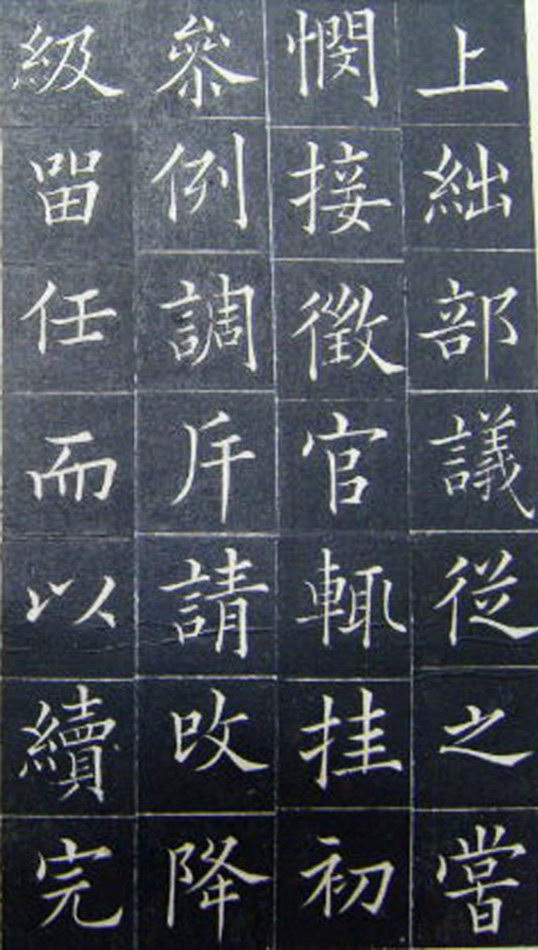 上絀部議從之嘗
憫接徵官輒挂初
叅例調斥請改降
級畱任而以續完